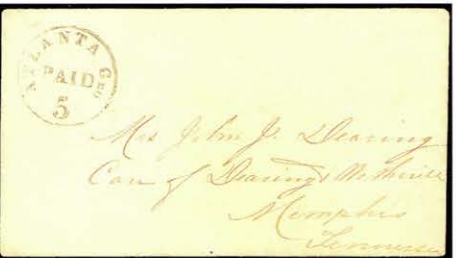 ATLANTA GEO
PAID
5
Mrs John J. Dearing
Care of Dearing &
Memphis
Tennessee